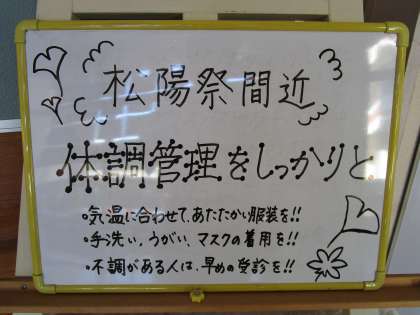 松陽祭間近
体調管理をしっかりと。
・気温に合わせて、あたたかい服装を!!
・手洗い、うがい、マスクの着用を!!
・不調がある人は、早めの受診を!!